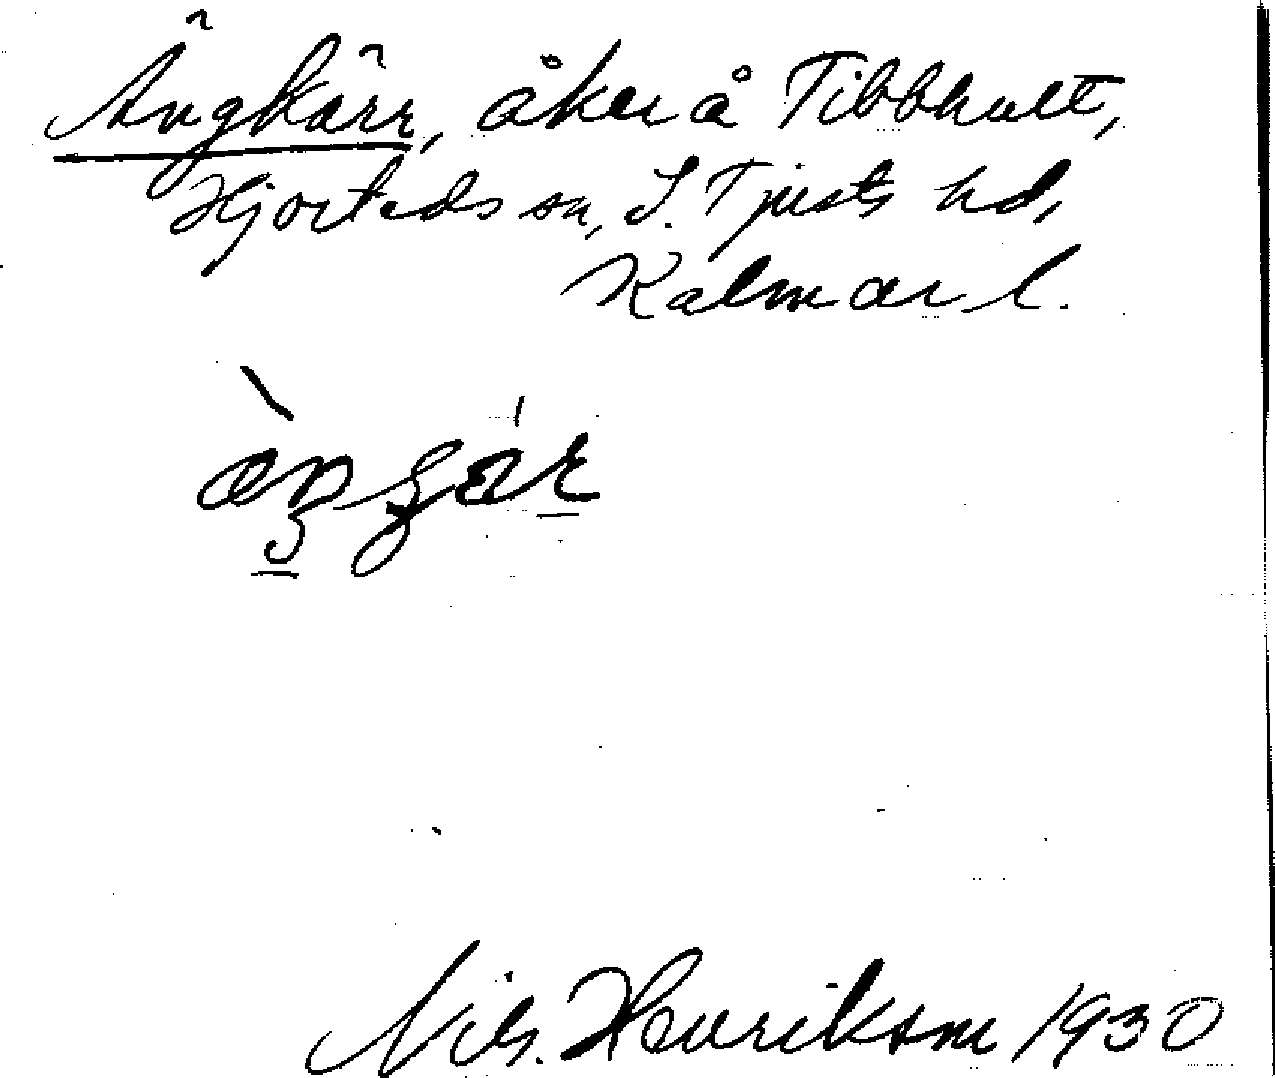 Ängkärr, åker å Tibbhult,
Hjorteds sn, S. Tjusts hd,
Kalmar l.
Nils. Henrikson 1930